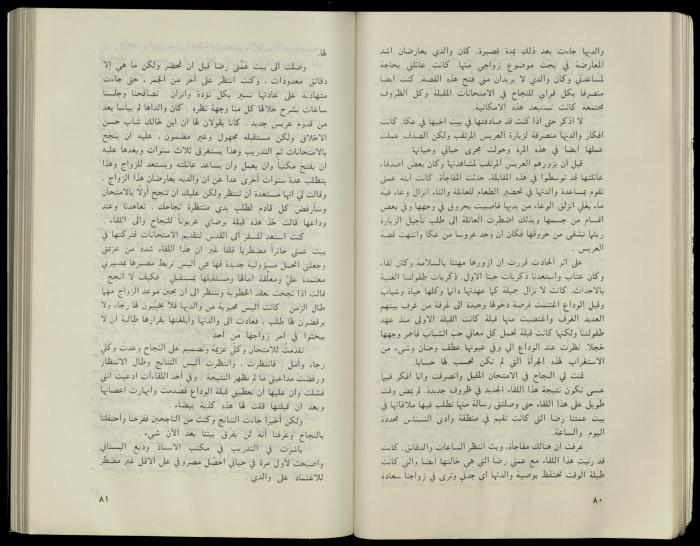 والديها جاءت بعد ذلك بمدة قصيرة. كان والدي يعارضان اشد
المعارضة في بحث موضوع زواجي منها. كانت عائلتي بحاجة
لمساعدتي وكان والدي لا يريدان مني فتح هذه القصة. كنت ايضا
منصرفا بكل قواي للنجاح في الامتحانات المقبلة وكل الظروف
مجتمعة كانت تستبعد هذه الامكانية.
لا اذكر حتى اذا كنت قد صادفتها في بيت اختها في عكا. كانت
افكار والديها منصرفة لزيارة العريس المرتقب ولكن الصدف عملت
عملها ايضا في هذه المرة وحولت مجرى حياتي وحياتها.
قبل ان يزورهم العريس المرتقب لمشاهدتها وكان بعض اصدقاء
عائلتها قد توسطوا في هذه المقابلة. حدثت المفاجأة. كانت ابنة عمتي
تقوم بمساعدة والدتها في تحضير الطعام للعائلة واثناء انزال وعاء فيه
ماء يغلي انزلق الوعاء من يديها فاصيبت بحروق في وجهها وفي بعض
اقسام من جسمها وبذلك اضطرت العائلة الى طلب تأجيل الزيارة
ريثما تشفى من حروقها فكان ان وجد عروسا من عكا وانتهت قصة
العريس.
على اثر الحادث قررت ان ازورها مهنئا بالسلامة وكان لقاء
وكان عتاب واستعدنا ذكريات حبنا الاول. ذكريات طفولتنا الغنية
بالاحداث. كانت لا تزال جميلة كما عهدتها دائما وكلها حياة وشباب
وقبل الوداع اغتنمت فرصة دخولها وحيدة الى غرفة من غرف بيتهم
العديد الغرف واغتصبت منها قبلة كانت القبلة الاولى منذ عهد
طفولتنا ولكنها كانت قبلة تحمل كل معاني حب الشباب فاحمر وجهها
خجلا. نظرت عند الوداع الي وفي عيونها عطف وحنان وشيء من
الاستغراب لهذه الجرأة التي لم تكن تحسب لها حسابا.
تمنت لي النجاح في الامتحان المقبل وانصرفت وانا افكر فيما
عسى نكون نتيجة هذا اللقاء الجديد في ظروف جديدة. لم يمض وقت
طويل على هذا اللقاء حتى وصلتني رسالة منها تطلب فيها ملاقاتها في
بيت عمتنا رضا التي كانت تقيم في منطقة وادي النسناس محددة
اليوم والساعة.
عرفت ان هنالك مفاجأة. وبت انتظر الساعات والدقائق. كانت
قد رتبت هذا اللقاء مع عمتي رضا التي هي خالتها ايضا والتي كانت
طيلة الوقت تحتفظ بوصية والدتها اي جدتي ونرى في زواجنا سعادة
٨٠
لها.
وصلت الى بيت عمتي رضا قبل ان تحضر ولكن ما هي إلا
دقائق معدودات. وكنت انتظر على أحر من الجمر، حتى جاءت
متهادية على عادتها تسير بكل تؤدة واتزان. تصافحنا وجلسنا
ساعات يشرح خلالها كل منا وجهة نظره. كان والداها لم ييأسا بعد
من قدوم عريس جديد. كانا يقولان لها ان ابن خالك شاب حسن
الاخلاق ولكن مستقبله مجهول وغير مضمون. عليه ان ينجح
بالامتحانات ثم التدريب وهذا يستغرق ثلاث سنوات وبعدها عليه
ان يفتح مكتباً وان يعمل وان يساعد عائلته ويستعد للزواج وهذا
يتطلب عدة سنوات أخرى عدا عن ان والديه يعارضان هذا الزواج.
وقالت لي انها مستعدة ان تنتظر ولكن عليك ان تنجح أولاً بالامتحان
وسأرفض كل قادم لطلب يدي منتظرة نجاحك. تعاهدنا وعند
وداعها قالت خذ هذه قبلة برضاي عربونا للنجاح والى اللقاء.
كنت استعد للسفر الى القدس لتقديم الامتحانات فتركتها في
بيت عمتي حائراً مضطرباً قلقا غير ان هذا اللقاء شدد من عزيمتي
وجعلني اتحمل مسؤولية جديدة فها هي أليس تربط مصيرها بمصيري
معتمدة عليّ ومعلّقة امالها ومستقبلها بمستقبلي. فكيف لا انجح.
قالت اذا نجحت نعقد الخطوبة وننتظر الى ان يحين موعد الزواج مهما
طال الزمن. كانت أليس محبوبة من والديها فلا يخيّبون لها رجاء ولا
يرفضون لها طلب، فعادت الى والدتها وأبلغتها بقرارها طالبة ان لا
يبحثوا في أمر زواجها من أحد.
تقدمتُ للامتحان وكلي عزيمة وتصميم على النجاح وعدت وكلي
رجاء وأمل. فانتظرت، وانتظرت أليس النتائج وطال الانتظار
ورفضت مداعبتي ما لم تظهر النتيجة. وفي أحد اللقاءات ادعيت انني
فشلت وان عليها ان تعطيني قبلة الوداع فصدمت وانهارت اعصابها
وبعد ان قبلتها قلت لها هذه كذبة بيضاء.
ولكن أخيراً جاءت النتائج وكنت من الناجحين ففرحنا واحتفلنا
بالنجاح وعرفنا أنه لن يفرق بيننا بعد الآن شيء.
باشرت في التدريب في مكتب الاستاذ وديع البستاني
واصبحت لأول مرة في حياتي احصّل مصروفي على الاقل غير مضطر
للاعتماد على والدي.
٨١